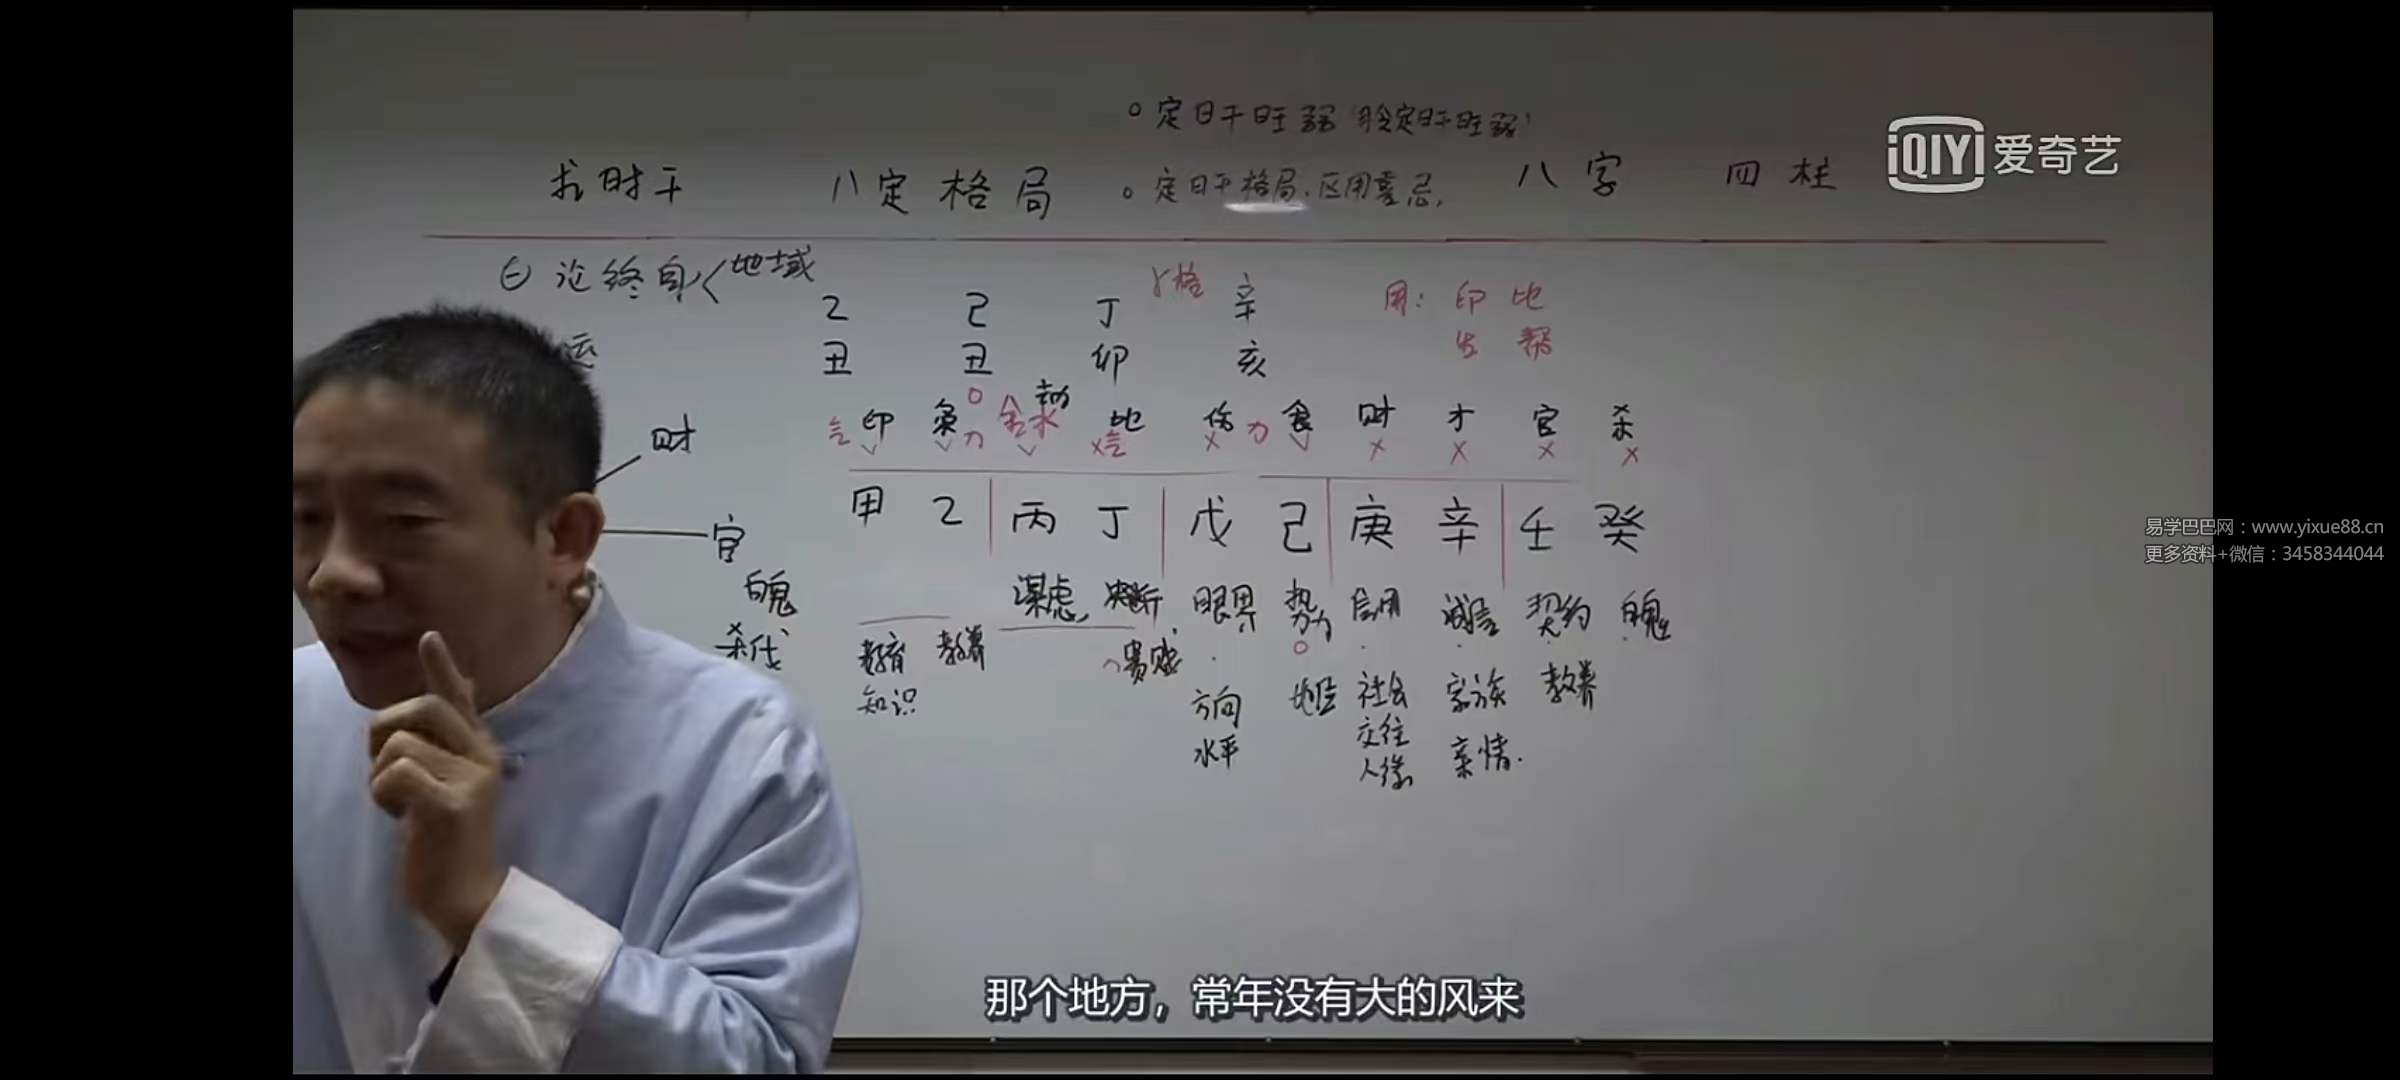 定日干旺弱
求时干 八定格局 定日干格局.区用喜忌, 八字 四柱
iQIYI 爱奇艺
㊀ 论终身 地域
乙 己 丁 辛
丑 丑 卯 亥
格
用: 印 比
生 帮
运
财
官
鬼
杀伐
印 枭 劫 比 伤 食 财 才 官 杀
甲 乙 丙 丁 戊 己 庚 辛 壬 癸
谋虑, 决断, 眼界 势力 信用 诚信 契约
教育 教养 贵贱 地位 社会 家族 教养
知识 方向 交往 亲情.
水平 人缘
易学巴巴网:www.yixue88.cn
更多资料+微信:3458344044
那个地方，常年没有大的风来